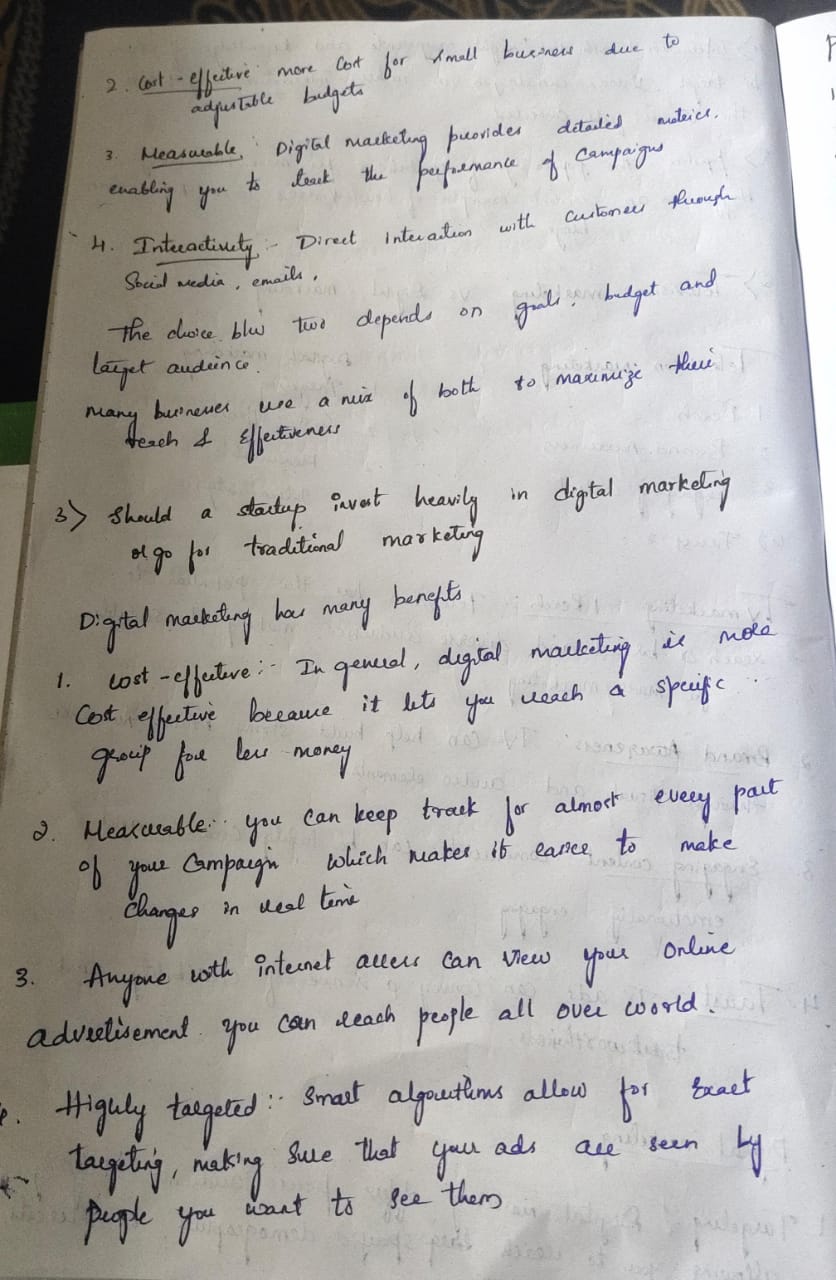 2. Cost-effective more Cost for small business due to
adjustable budgets
3. Measurable, Digital marketing provides detailed metrics.
enabling you to track the performance of Campaigns
4. Interactivity :- Direct interaction with Customers through
Social media, emails,
The choice b/w two depends on goals, budget and
target audience.
many businesses use a mix of both to maximize their
reach & Effectiveness
3) Should a startup invest heavily in digital marketing
or go for traditional marketing
Digital marketing has many benefits
1. Cost-effective :- In general, digital marketing is more
Cost effective because it lets you reach a specific
group for less money
2. Measurable: you can keep track for almost every part
of your Campaign which makes it easier to make
Changes in real time
3. Anyone with internet access can view your online
advertisement you can reach people all over world.
Highly targeted :- Smart algorithms allow for Exact
targeting, making Sure that your ads are seen by
people you want to see them